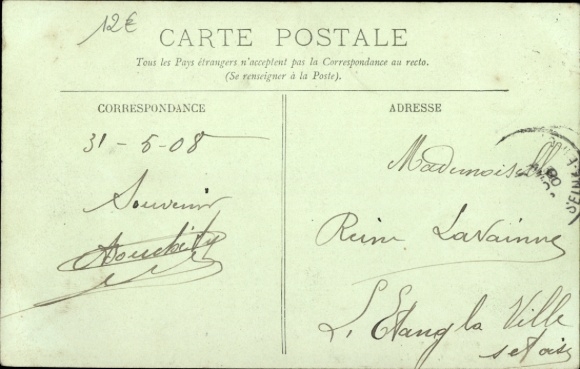 12€
CARTE POSTALE
Tous les Pays étrangers n'acceptent pas la Correspondance au recto.
(Se renseigner à la Poste).
CORRESPONDANCE
31-5-08
Souvenir
ADRESSE
Mademoiselle
Reine Lavainne
L'Etang la Ville
S et Oise